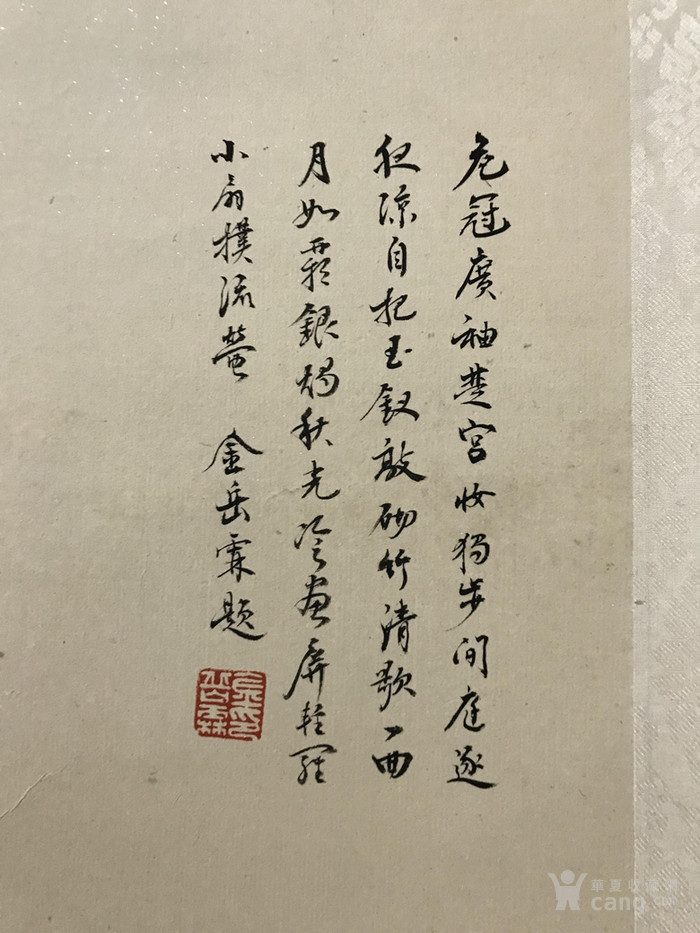 危冠廣袖楚宮妝獨步閒庭逐
夜涼自把玉釵敲砌竹清歌一曲
月如霜銀燭秋光冷畫屏輕羅
小扇撲流螢 金岳霖題
華夏收藏網
cang.com